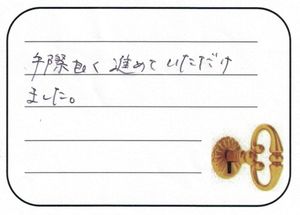 手際良く進めていただけ
ました。